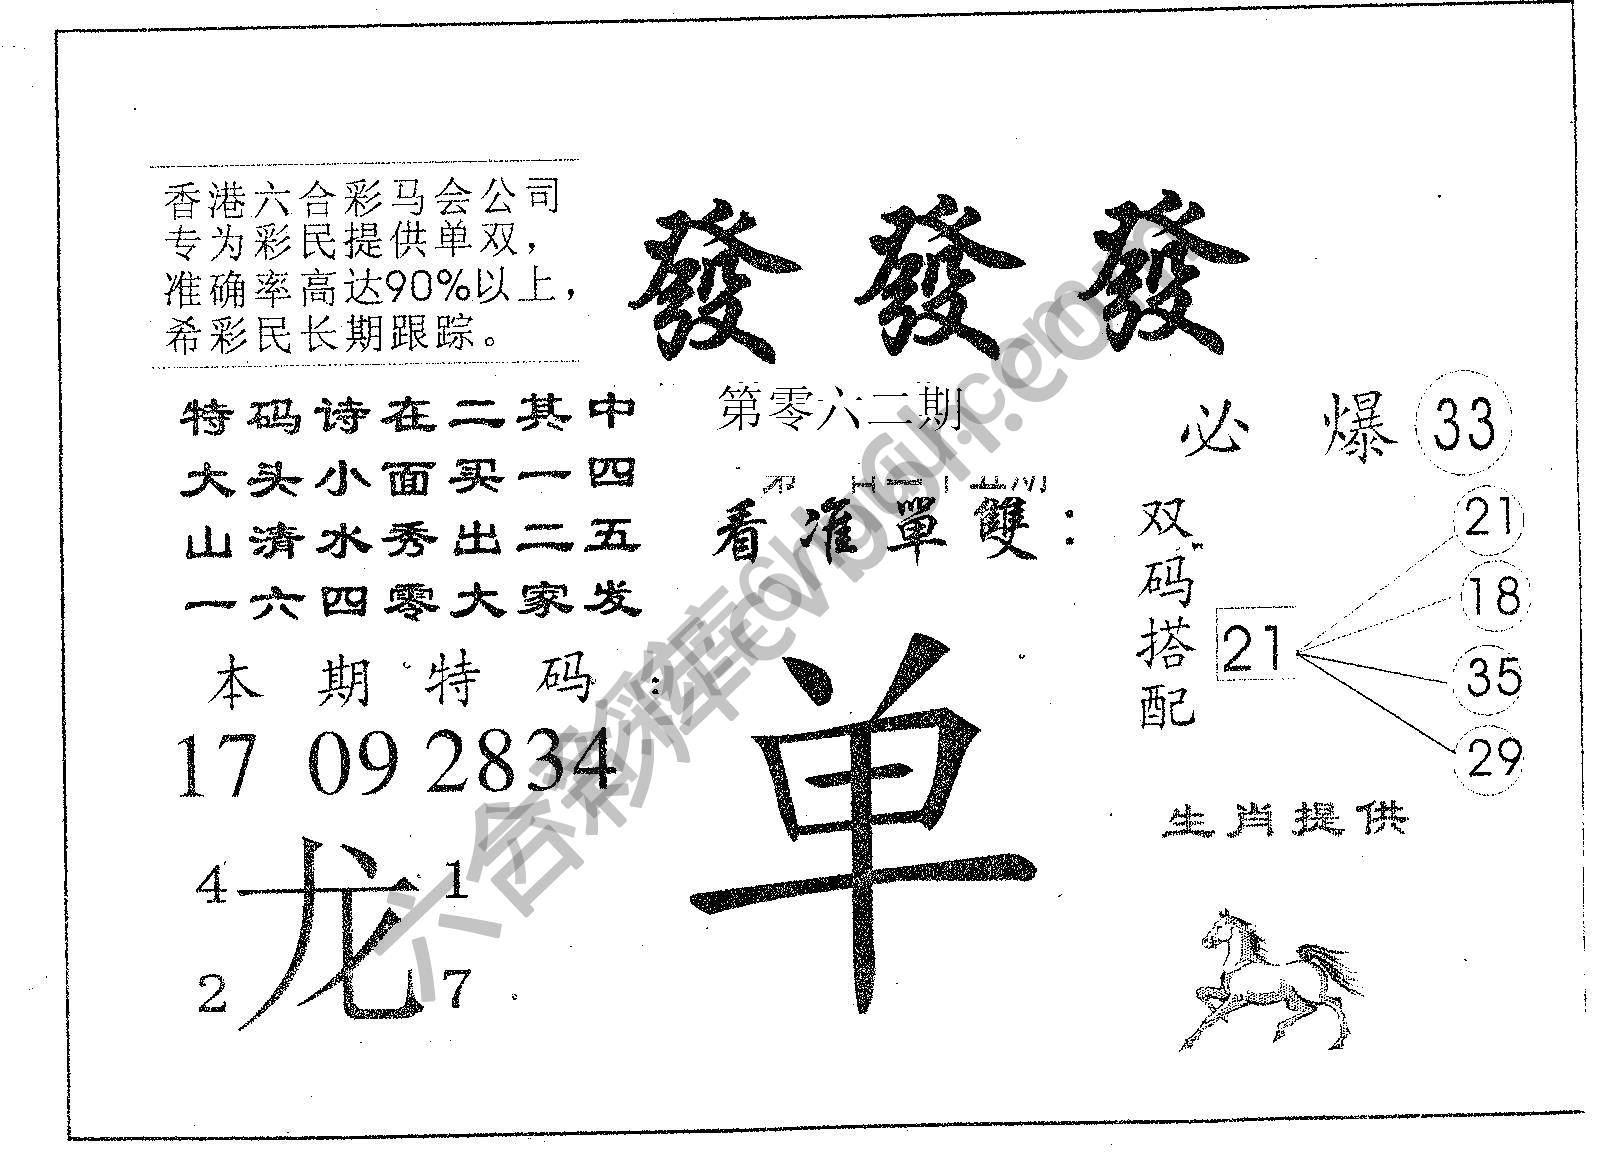 香港六合彩马会公司
专为彩民提供单双，
准确率高达90%以上，
希彩民长期跟踪。
發 發 發
特码诗在二其中
大头小面买一四
山清水秀出二五
一六四零大家发
第零六二期
看准單雙：
单
必 爆 33
双码搭配
21
21
18
35
29
本期特码：
17 09 28 34
龙
4 1
2 7
生肖提供
六合彩库